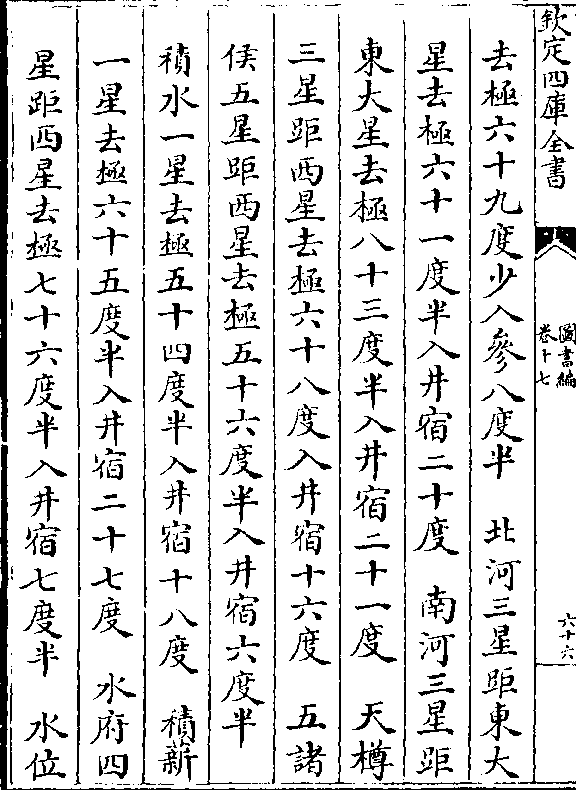 欽定四庫全書
圖書編
卷十七
六十六
去極六十九度少入參八度半　北河三星距東大
星去極六十一度半入井宿二十度　南河三星距
東大星去極八十三度半入井宿二十一度　天樽
三星距西星去極六十八度入井宿十六度　五諸
侯五星距西星去極五十六度半入井宿六度半
積水一星去極五十四度半入井宿十八度　積薪
一星去極六十五度半入井宿二十七度　水府四
星距西星去極七十六度半入井宿七度半　水位